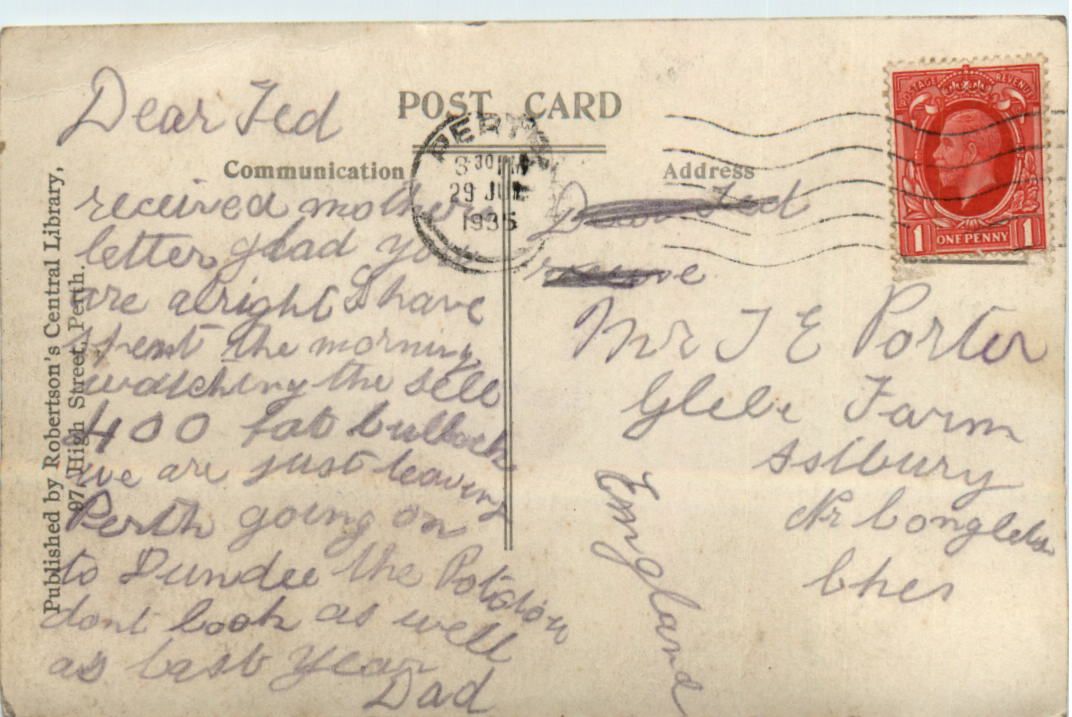 POST CARD
Communication
Address
Published by Robertson's Central Library,
97, High Street, Perth.
PERTH
30 PM
29 JUL
1935
POSTAGE REVENUE
1 ONE PENNY 1
Dear Ted
received mothers
letter glad you
are alright I have
spent the morning
watching the sell
400 fat bullock
we are just leaving
Perth going on
to Dundee the Potatow
dont look as well
as last year
Dad
Ted
Mr T E Porter
Glebe Farm
Astbury
Nr Congleton
Ches
England